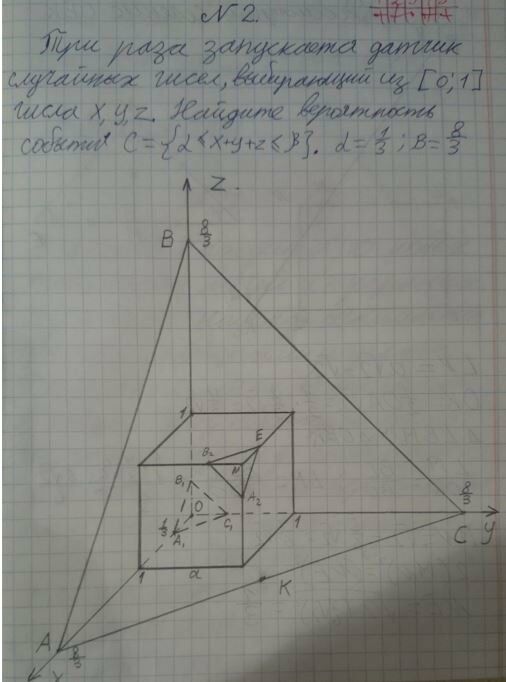 N 2.
Три раза запускается датчик
случайных чисел, выбирающий из [0; 1]
числа x, y, z. Найдите вероятность
события C = {α ≤ x+y+z ≤ β}. α = 1/3 ; β = 8/3
Z.
B 8/3
1
B₂ E
M
B₁ A₂
O 8/3
1/3 A₁ C₁ 1 C y
1 a K
A 8/3
x